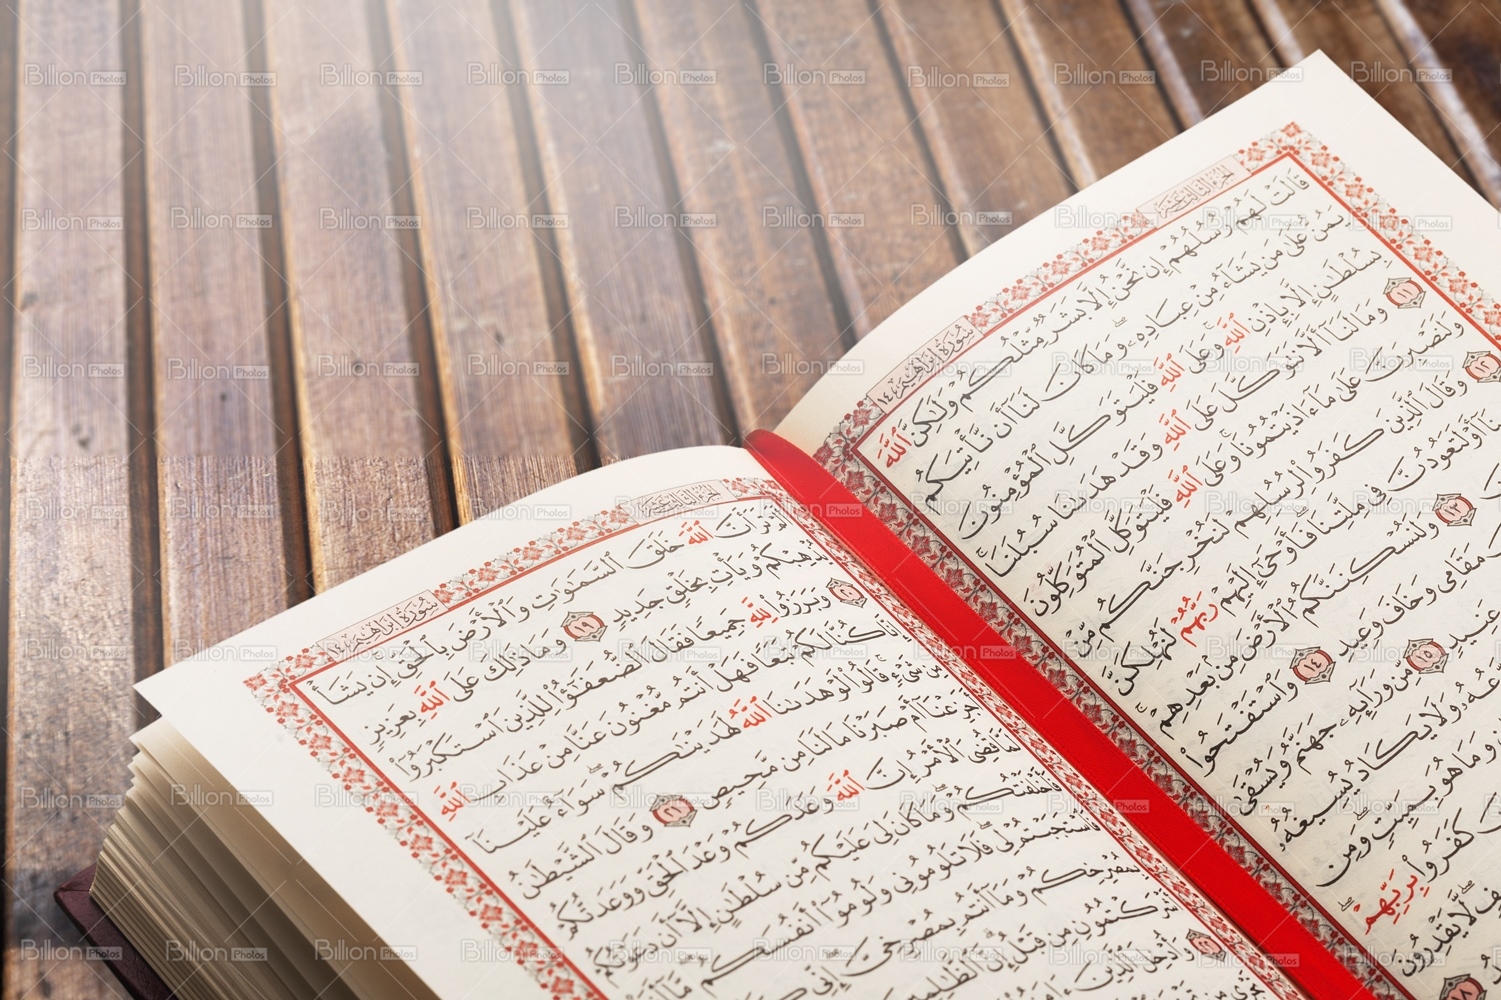 الجزء الثالث عشر
سورة إبراهيم ١٤
قَالَتْ لَهُمْ رُسُلُهُمْ إِن نَّحْنُ إِلَّا بَشَرٌ مِّثْلُكُمْ وَلَٰكِنَّ ٱللَّهَ
يَمُنُّ عَلَىٰ مَن يَشَآءُ مِنْ عِبَادِهِۦ وَمَا كَانَ لَنَآ أَن نَّأْتِيَكُم
بِسُلْطَٰنٍ إِلَّا بِإِذْنِ ٱللَّهِ وَعَلَى ٱللَّهِ فَلْيَتَوَكَّلِ ٱلْمُؤْمِنُونَ
١١ وَمَا لَنَآ أَلَّا نَتَوَكَّلَ عَلَى ٱللَّهِ وَقَدْ هَدَىٰنَا سُبُلَنَا
وَلَنَصْبِرَنَّ عَلَىٰ مَآ ءَاذَيْتُمُونَا وَعَلَى ٱللَّهِ فَلْيَتَوَكَّلِ ٱلْمُتَوَكِّلُونَ
١٢ وَقَالَ ٱلَّذِينَ كَفَرُوا۟ لِرُسُلِهِمْ لَنُخْرِجَنَّكُم مِّنْ
أَوْ لَتَعُودُنَّ فِى مِلَّتِنَا فَأَوْحَىٰٓ إِلَيْهِمْ رَبُّهُمْ لَنُهْلِكَنَّ
١٣ وَلَنُسْكِنَنَّكُمُ ٱلْأَرْضَ مِنۢ بَعْدِهِمْ
مَقَامِى وَخَافَ وَعِيدِ ١٤ وَٱسْتَفْتَحُوا۟
عَنِيدٍ ١٥ مِّن وَرَآئِهِۦ جَهَنَّمُ وَيُسْقَىٰ
وَلَا يَكَادُ يُسِيغُهُۥ
وَمَا هُوَ بِمَيِّتٍ وَمِن
كَفَرُوا۟ بِرَبِّهِمْ
لَّا يَقْدِرُونَ
١٨
الجزء الثالث عشر
سورة إبراهيم ١٤
أَلَمْ تَرَ أَنَّ ٱللَّهَ خَلَقَ ٱلسَّمَٰوَٰتِ وَٱلْأَرْضَ بِٱلْحَقِّ إِن يَشَأْ
يُذْهِبْكُمْ وَيَأْتِ بِخَلْقٍ جَدِيدٍ ١٩ وَمَا ذَٰلِكَ عَلَى ٱللَّهِ بِعَزِيزٍ
٢٠ وَبَرَزُوا۟ لِلَّهِ جَمِيعًا فَقَالَ ٱلضُّعَفَٰٓؤُا۟ لِلَّذِينَ ٱسْتَكْبَرُوٓا۟
إِنَّا كُنَّا لَكُمْ تَبَعًا فَهَلْ أَنتُم مُّغْنُونَ عَنَّا مِنْ عَذَابِ ٱللَّهِ
مِن شَىْءٍ قَالُوا۟ لَوْ هَدَىٰنَا ٱللَّهُ لَهَدَيْنَٰكُمْ سَوَآءٌ عَلَيْنَآ
أَجَزِعْنَآ أَمْ صَبَرْنَا مَا لَنَا مِن مَّحِيصٍ ٢١ وَقَالَ ٱلشَّيْطَٰنُ
لَمَّا قُضِىَ ٱلْأَمْرُ إِنَّ ٱللَّهَ وَعَدَكُمْ وَعْدَ ٱلْحَقِّ وَوَعَدتُّكُمْ
فَأَخْلَفْتُكُمْ وَمَا كَانَ لِىَ عَلَيْكُم مِّن سُلْطَٰنٍ إِلَّآ أَن دَعَوْتُكُمْ
فَٱسْتَجَبْتُمْ لِى فَلَا تَلُومُونِى وَلُومُوٓا۟ أَنفُسَكُم مَّآ أَنَا۠
بِمُصْرِخِكُمْ وَمَآ أَنتُم بِمُصْرِخِىَّ إِنِّى
أَشْرَكْتُمُونِ مِن قَبْلُ إِنَّ ٱلظَّٰلِمِينَ
وَأُدْخِلَ ٱلَّذِينَ
Billion Photos